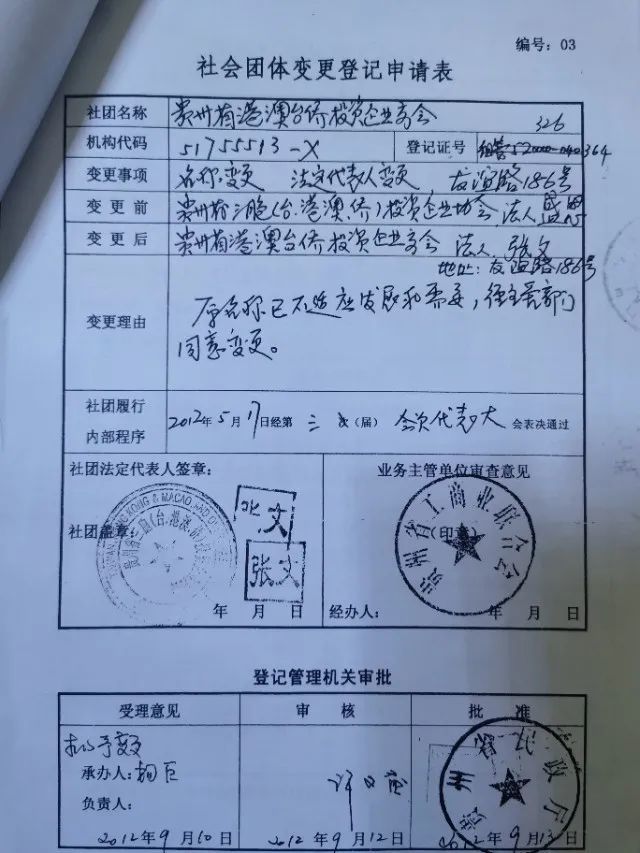 编号：03
社会团体变更登记申请表
社团名称 贵州省港澳台侨投资企业商会 326
机构代码 51755513-X 登记证号 364
变更事项 名称变更 法定代表人变更，友谊路186号
变更前 贵州省 (台.港澳.侨)投资企业协会，法人
变更后 贵州省港澳台侨投资企业商会 法人 张文
地址：友谊路186号
变更理由 原名称已不适应发展和需要，经主管部门
同意变更。
社团履行
内部程序
2012年5月17日经第三 (届) 会员代表大会表决通过
社团法定代表人签章：
业务主管单位审查意见
张文
社团盖章：
（印章）
张文
贵州省工商业联合会
年 月 日
经办人： 年 月 日
登记管理机关审批
受理意见 审核 批准
承办人：
负责人：
贵州省民政厅
2012年9月10日 2012年9月12日 2012年9月13日